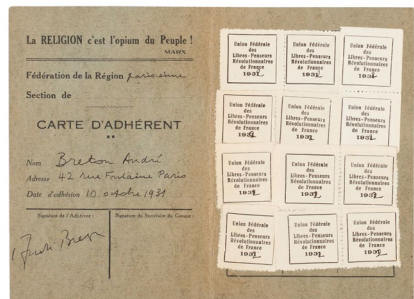 La RELIGION c'est l'opium du Peuple !
MARX
Fédération de la Région parisienne
Section de
CARTE D'ADHÉRENT
Nom Breton André
Adresse 42 rue Fontaine Paris
Date d'adhésion 10 octobre 1931
Signature de l'Adhérent :
Signature du Secrétaire du Groupe :
André Breton
Union Fédérale
des
Libres-Penseurs
Révolutionnaires
de France
1931
Union Fédérale
des
Libres-Penseurs
Révolutionnaires
de France
1931
Union Fédérale
des
Libres-Penseurs
Révolutionnaires
de France
193
Union Fédérale
des
Libres-Penseurs
Révolutionnaires
de France
193
Union Fédérale
des
Libres-Penseurs
Révolutionnaires
de France
193
Union Fédérale
des
Libres-Penseurs
Révolutionnaires
de France
193
Union Fédérale
des
Libres-Penseurs
Révolutionnaires
de France
193
Union Fédérale
des
Libres-Penseurs
Révolutionnaires
de France
193
Union Fédérale
des
Libres-Penseurs
Révolutionnaires
de France
193
Union Fédérale
des
Libres-Penseurs
Révolutionnaires
de France
193
Union Fédérale
des
Libres-Penseurs
Révolutionnaires
de France
193
Union Fédérale
des
Libres-Penseurs
Révolutionnaires
de France
193